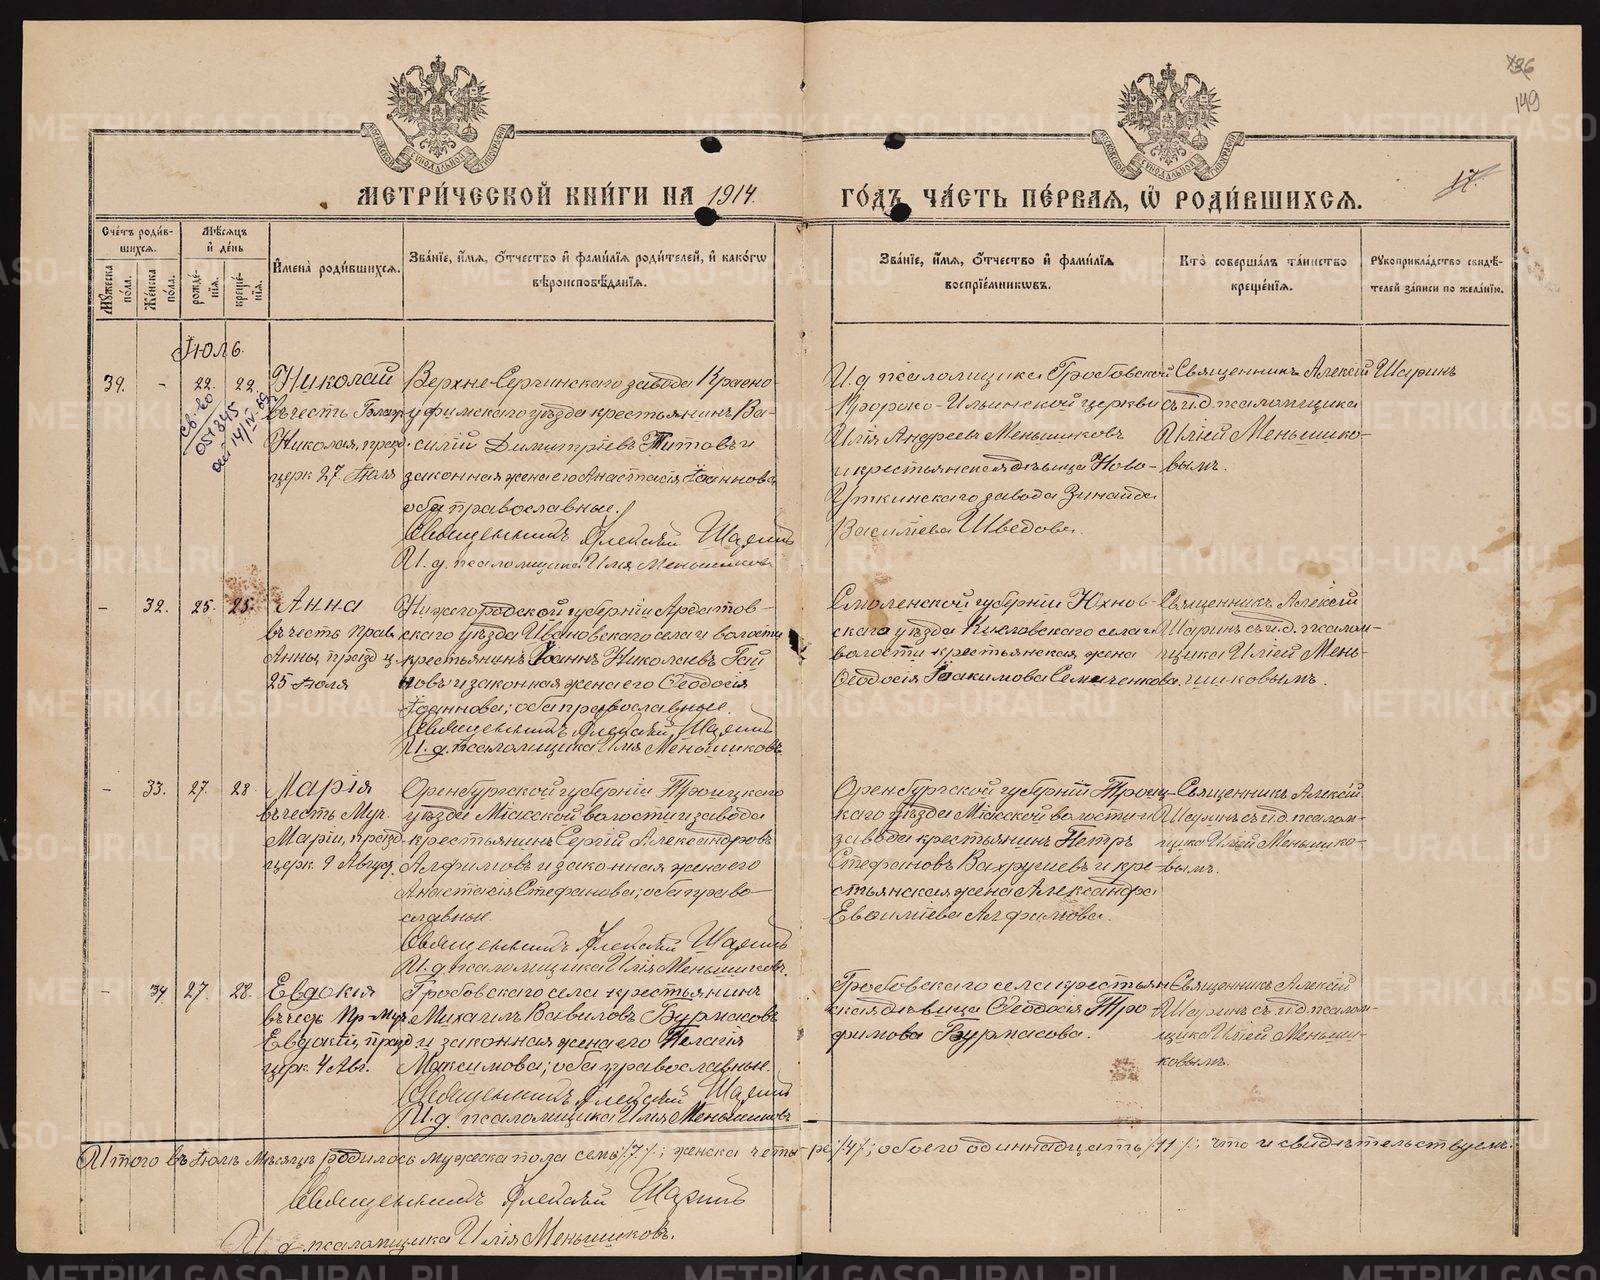 136
149
17.
МЕТРИ́ЧЕСКОЙ КНИ́ГИ НА 1914. ГО́ДЪ ЧА́СТЬ ПЕ́РВАЯ, Ѡ҆ РОДИ́ВШИХСЯ.
Сче́тъ роди́вшихся.
Му́жеска по́ла.
Же́нска по́ла.
Мѣ́сяцъ и҆ де́нь
рожде́нїя.
креще́нїя.
И҆мена̀ роди́вшихся.
Зва́нїе, и҆́мя, ѻ҆́тчество и҆ фами́лїя роди́телей, и҆ како́гѡ
вѣроисповѣ́данїя.
Зва́нїе, и҆́мя, ѻ҆́тчество и҆ фами́лїя
воспрїе́мникѡвъ.
Кто̀ соверша́лъ та́инство
креще́нїя.
Рꙋкоприкла́дство свидѣ́-
телей за́писи по жела́нїю.
Іюль.
39. - 22. 22.
Николай
въ честь
Николая, празд.
церк 27. Іюля
Верхне-Сергинскаго завода Красно-
уфимскаго уѣзда крестьянинъ Ва-
силій Димитріевъ Титовъ и
законная жена его Анастасія Іоаннова,
оба православные.
Священникъ Алексѣй Шаринъ
И. д. псаломщика Илія Меньшиковъ
И. д. псаломщика Гробовской
Пророко-Ильинской церкви
Илія Андреевъ Меньшиковъ
и крестьянская дѣвица Ново-
Уткинскаго завода Зинаида
Василіева Шведова.
Священникъ Алексій Шаринъ
съ и.д. псаломщика
Иліей Меньшико-
вымъ.
- 32. 25. 25.
Анна
въ честь прав.
Анны, празд ц.
25 Іюля
Нижегородской губерніи Ардатов-
скаго уѣзда Ивановскаго села и волости
крестьянинъ Іоаннъ Николаевъ Гай
новъ и законная жена его Ѳеодосія
Іоаннова; оба православные.
Священникъ Алексѣй Шаринъ
И. д. псаломщика Илія Меньшиковъ
Смоленской губерніи Юхнов-
скаго уѣзда Кисловскаго села и
волости крестьянская жена
Ѳеодосія Іоакимова Семиченкова.
Священникъ Алексій
Шаринъ съ и.д. псалом-
щика Иліей Мень-
шиковымъ.
- 33. 27. 28.
Марія
въ честь Муч.
Маріи, празд.
церк. 9 Август.
Оренбургской губерніи Троицкаго
уѣзда Міасской волости и завода
крестьянинъ Сергій Александровъ
Алфимовъ и законная жена его
Анастасія Стефанова; оба право-
славные.
Священникъ Алексѣй Шаринъ
И. д. псаломщика Илія Меньшиковъ.
Оренбургской губерніи Троиц-
каго уѣзда Міасской волости и
завода крестьянинъ Петръ
Стефановъ Вахрушевъ и кре-
стьянская жена Александра
Евѳиміева Алфимова.
Священникъ Алексій
Шаринъ съ и.д. псалом-
щика Иліей Меньшико-
вымъ.
- 34. 27. 28.
Евдокія
въ честь Пр-муч.
Евдокіи, празд.
церк. 4 Авг.
Гробовскаго села крестьянинъ
Михаилъ Вавиловъ Бурмасовъ
и законная жена его Пелагія
Максимова; оба православные.
Священникъ Алексѣй Шаринъ
И. д. псаломщика Илія Меньшиковъ
Гробовскаго села крестьян
ская дѣвица Ѳеодосія Тро
фимова Бурмасова.
Священникъ Алексій
Шаринъ съ и.д. псалом-
щика Иліей Меньши-
ковымъ.
Итого въ Іюлѣ мѣсяцѣ родилось мужеска пола семь /7/; женска четыре /4/; обоего одиннадцать /11/; что и свидѣтельствуемъ:
Священникъ Алексѣй Шаринъ
И. д. псаломщика Илія Меньшиковъ.
METRIKI.GASO-URAL.RU